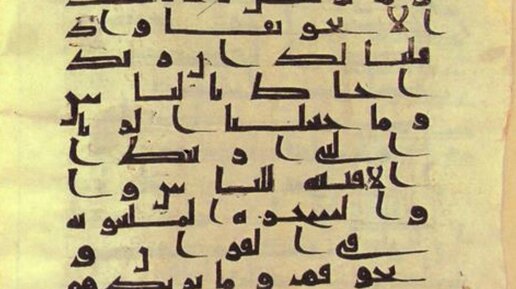 الا تخويفا واذ
قلنا لك ان ربك
احاط بالناس
وما جعلنا الريا
التي ارينك ا
لا فتنه للناس وا
لشجره الملعونه
في القران و
نخوفهم فما يزيدهم